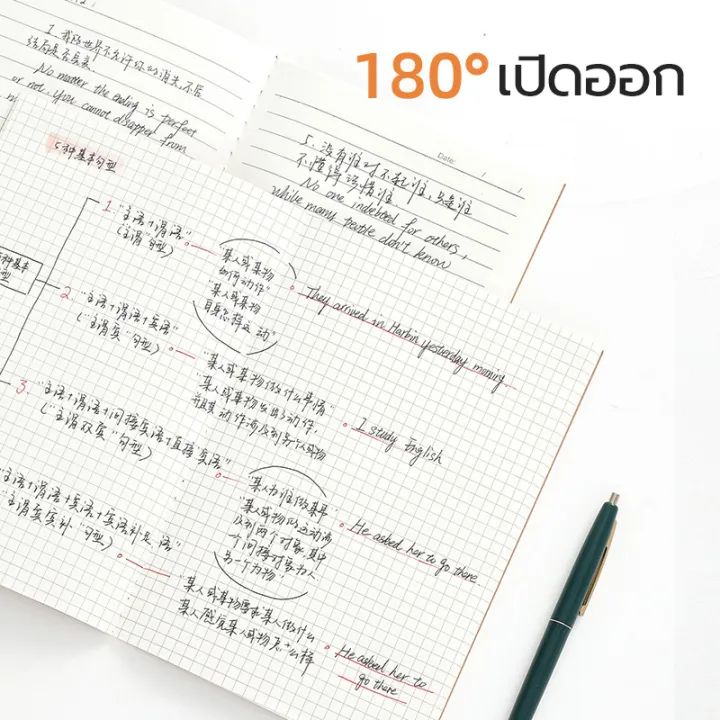 180° เปิดออก
1. 我的世界不允许你的消失, 不管
结局是否完美
No matter the ending is perfect
or not, you cannot disapper from
Date: / /
5. 没有谁对不起谁, 只是谁
不懂得珍惜谁.
No one indebted for others,
while many people don't know
5种基本句型
1. "主语+谓语"
(主谓"句型)
"某人或某物
如何动作"
"某人或某物
自身怎样运动"
They arrived in Harbin yesterday morning
2. "主语+谓语+宾语"
("主谓宾"句型)
"某人或某物做什么事情"
"某人或某物发出了动作,
I study English
3. "主语+谓语+间接宾语+直接宾语"
("主谓双宾"句型)
"某人为谁做某事"
"某人或某物的运动涉
及到两个对象, 其中
一个间接对象为人
另一个为物"
He asked her to go there.
"主语+谓语+宾语+宾语补足语"
"主谓宾宾补"句型)
某人或某物要求某人做什么
某人感觉某人或物怎么样
He asked her to
go there